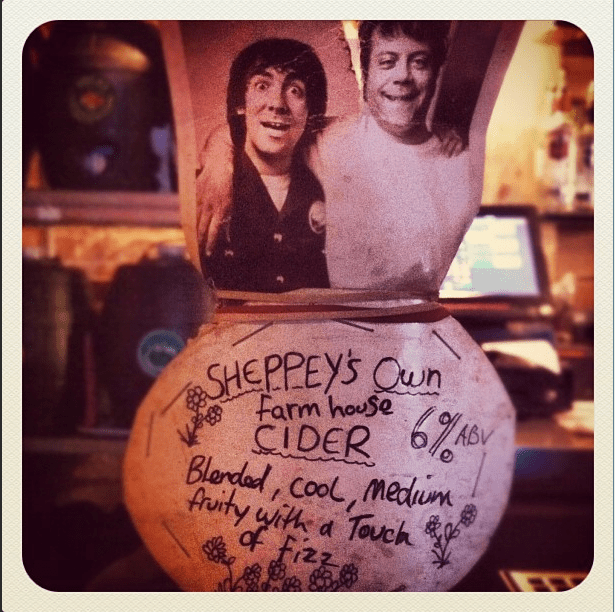 SHEPPEY'S Own
Farm house
CIDER
6% ABV
Blended, cool, medium
fruity with a Touch
of fizz